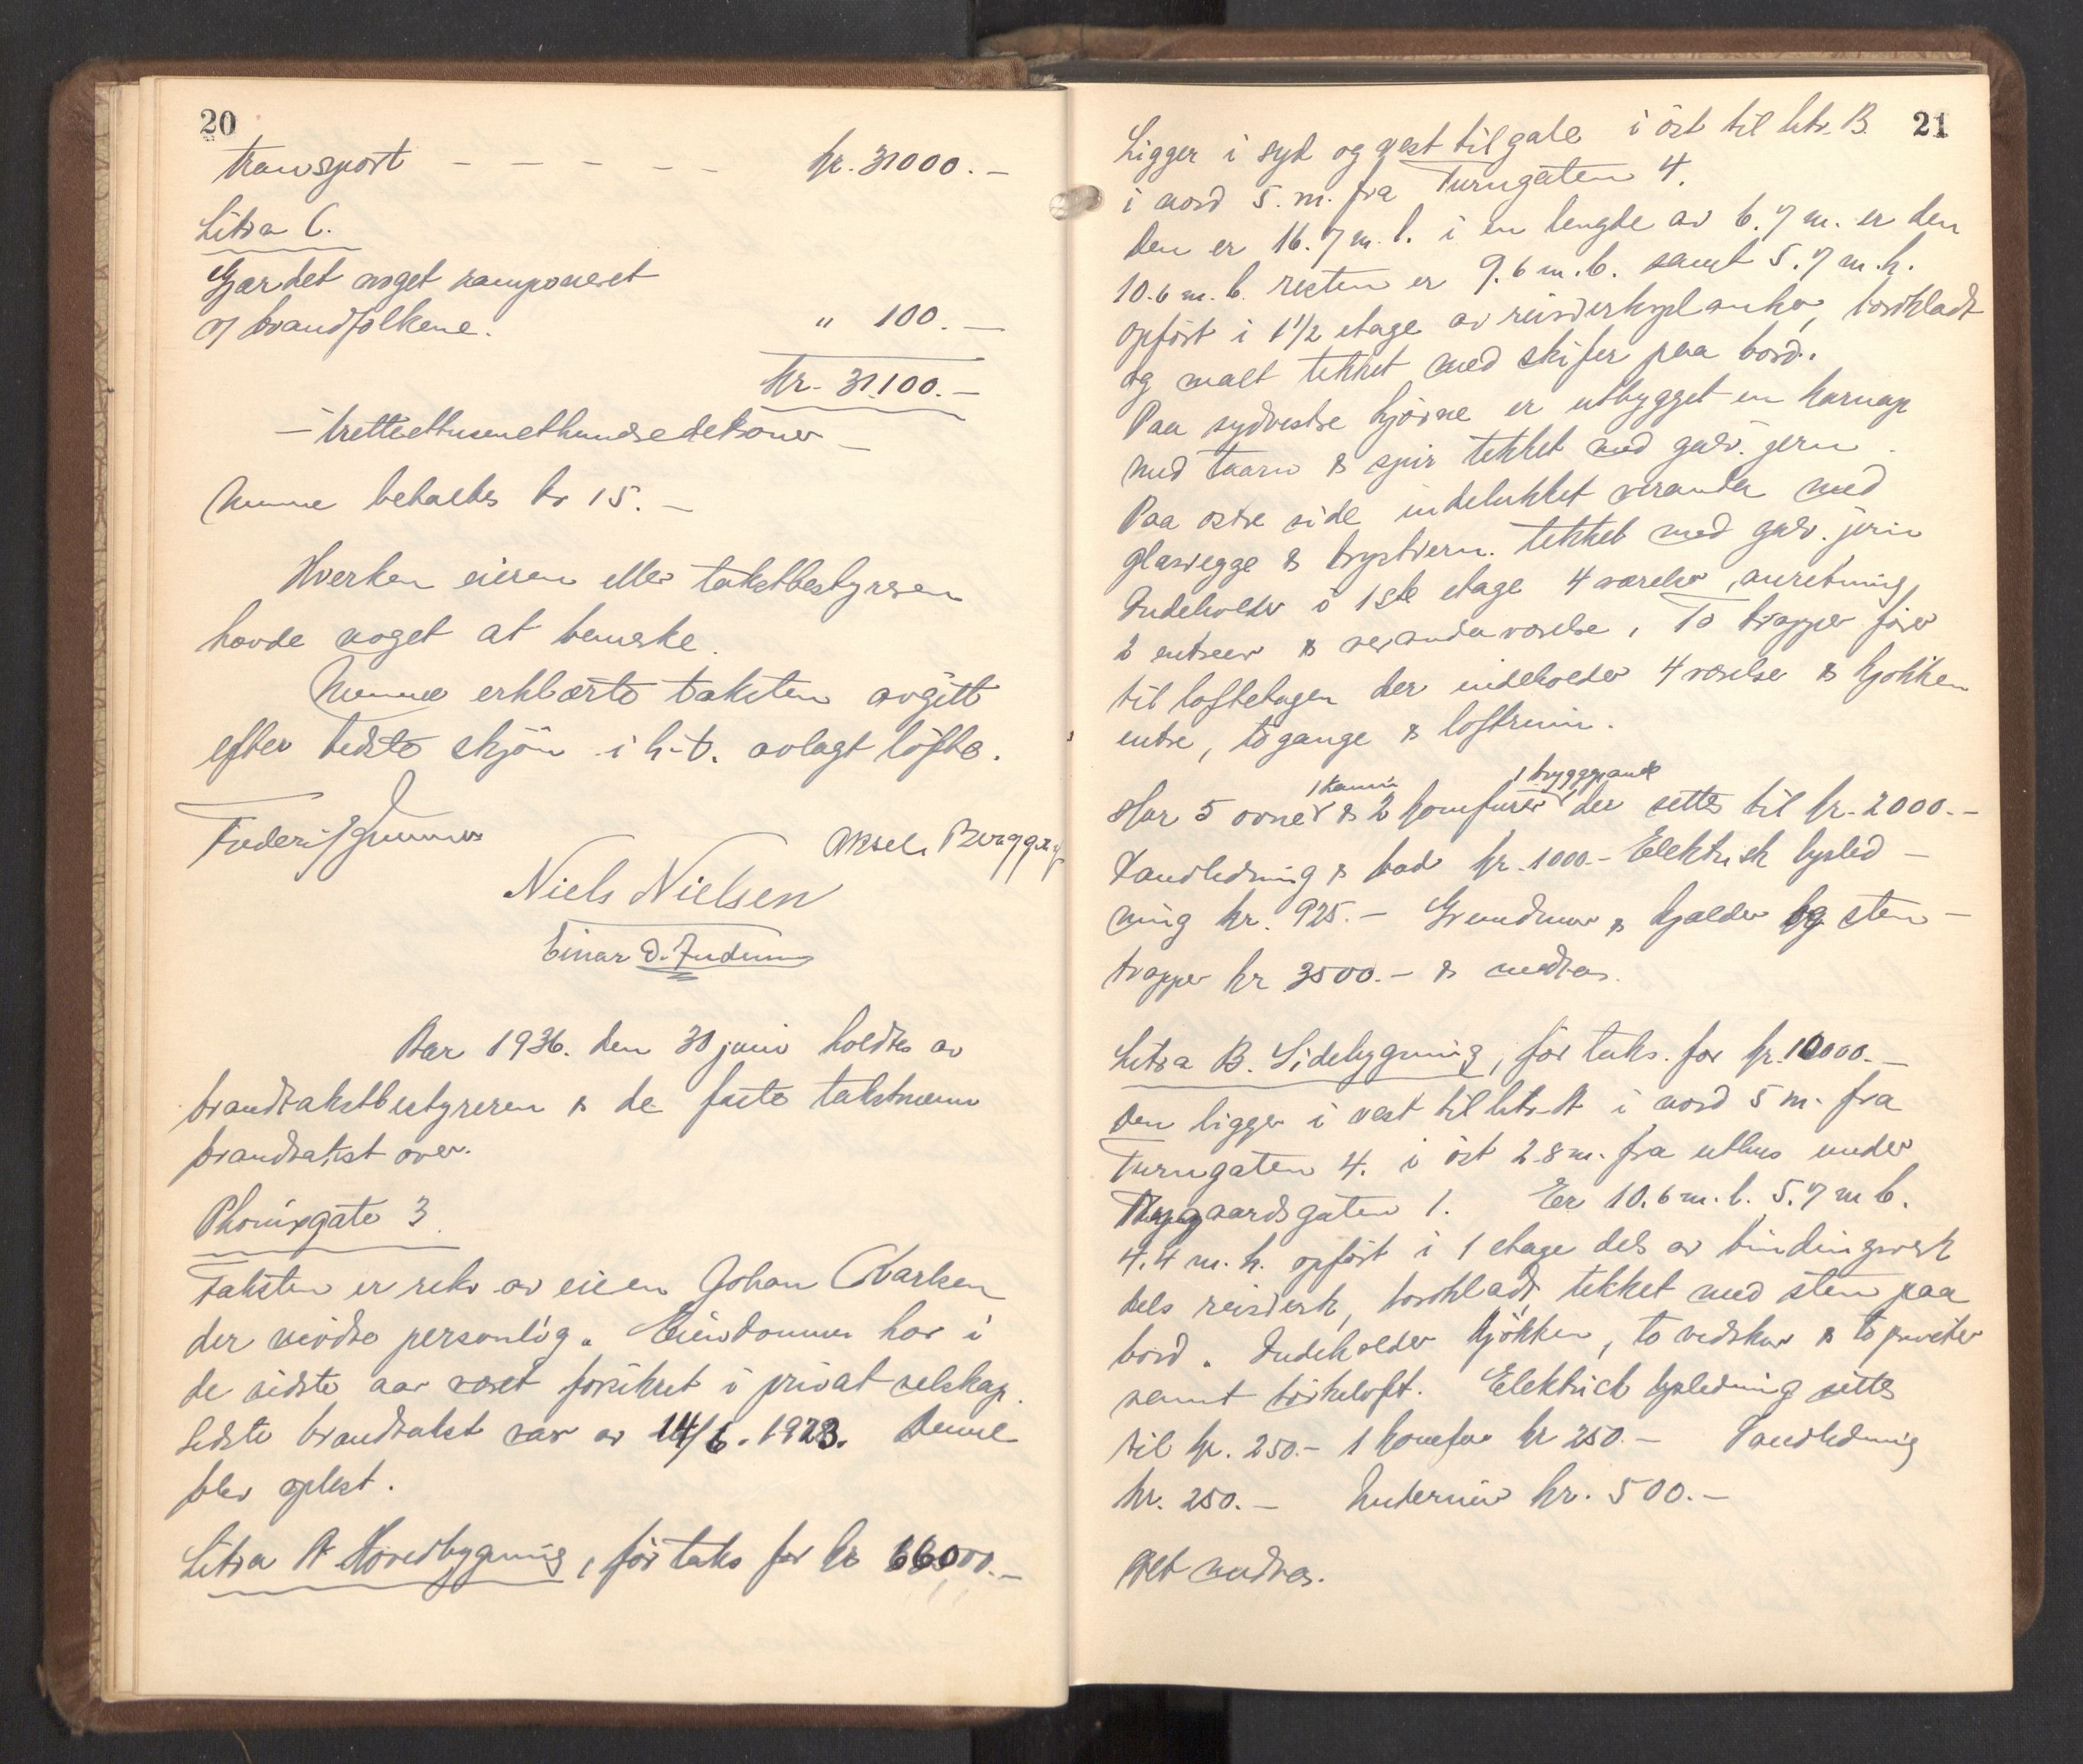 20
Transport – – – – – kr. 31000.–
Litra C.
Gjærdet noget ramponeret
af brandfolkene. " 100.–
kr. 31.100.–
– trettiettusenethundredekroner –
Mennene betaltes kr 15.–
Hverken eieren eller takstbestyreren
havde noget at bemerke.
Mennene erklærte taksten avgitt
efter bedste skjøn i h.t. avlagt løfte.
Aksel Berggren
Niels Nielsen
Einar D.
Aar 1936. den 30 juni holdtes av
brandtakstbestyreren & de faste takstmenn
brandtakst over.
Phønixgate 3.
Taksten er rekv. av eieren Johan
der mødte personlig. Eiendommen har i
de sidste aar været forsikret i privat selskap.
Sidste brandtakst var av 14/6. 1923. Denne
blev oplest.
Litra A Hovedbygning, før takst for kr 66000.–
21
Ligger i syd og vest til gate i øst til litr. B.
i nord 5. m. fra Turngaten 4.
Den er 16.7 m. l. i en lengde av 6.7 m. er den
10.6 m. b. resten er 9.6 m. b. samt 5.7 m. h.
opført i 1 1/2 etage av reisverksplanker, bordkladt
og malt tekket med skifer paa bord.
Paa sydvestre hjørne er utbygget en karnap
med taarn & spir tekket med galv. jern.
Paa østre side indelukket veranda med
glasvegge & brystvern. tekket med galv. jern
Indeholder i 1ste etage 4 værelser, anretning,
2 entreer & verandaværelse, To trapper fører
til loftetagen der indeholder 4 værelse & kjøkken
entre, to gange & loftrum.
1 kamin 1 bryggepande
Har 5 ovner & 2 komfurer der settes til kr. 2000.–
Vandledning & bad kr. 1000.– Elektrisk lysled–
ning kr. 925.– Grundmur & kjælder og sten–
trapper kr 3500.– & medtas.
Litra B. Sidebygning, før taks. for kr. 10000.–
Den ligger i vest til litr. A i nord 5 m. fra
Turngaten 4. i øst 2.8 m. fra uthus under
Nygaardsgaten 1. Er 10.6 m. l. 5.7 m b.
4.4 m. h. opført i 1 etage dels av bindingsverk
dels reisverk, bordkladt, tekket med sten paa
bord. Indeholder kjøkken, to vedskur & to priveter
samt tørkeloft. Elektrisk lysledning settes
til kr. 250.– 1 komfur kr 250.– Vandledning
kr. 250.– Undermur kr. 500.–
Alt medtas.